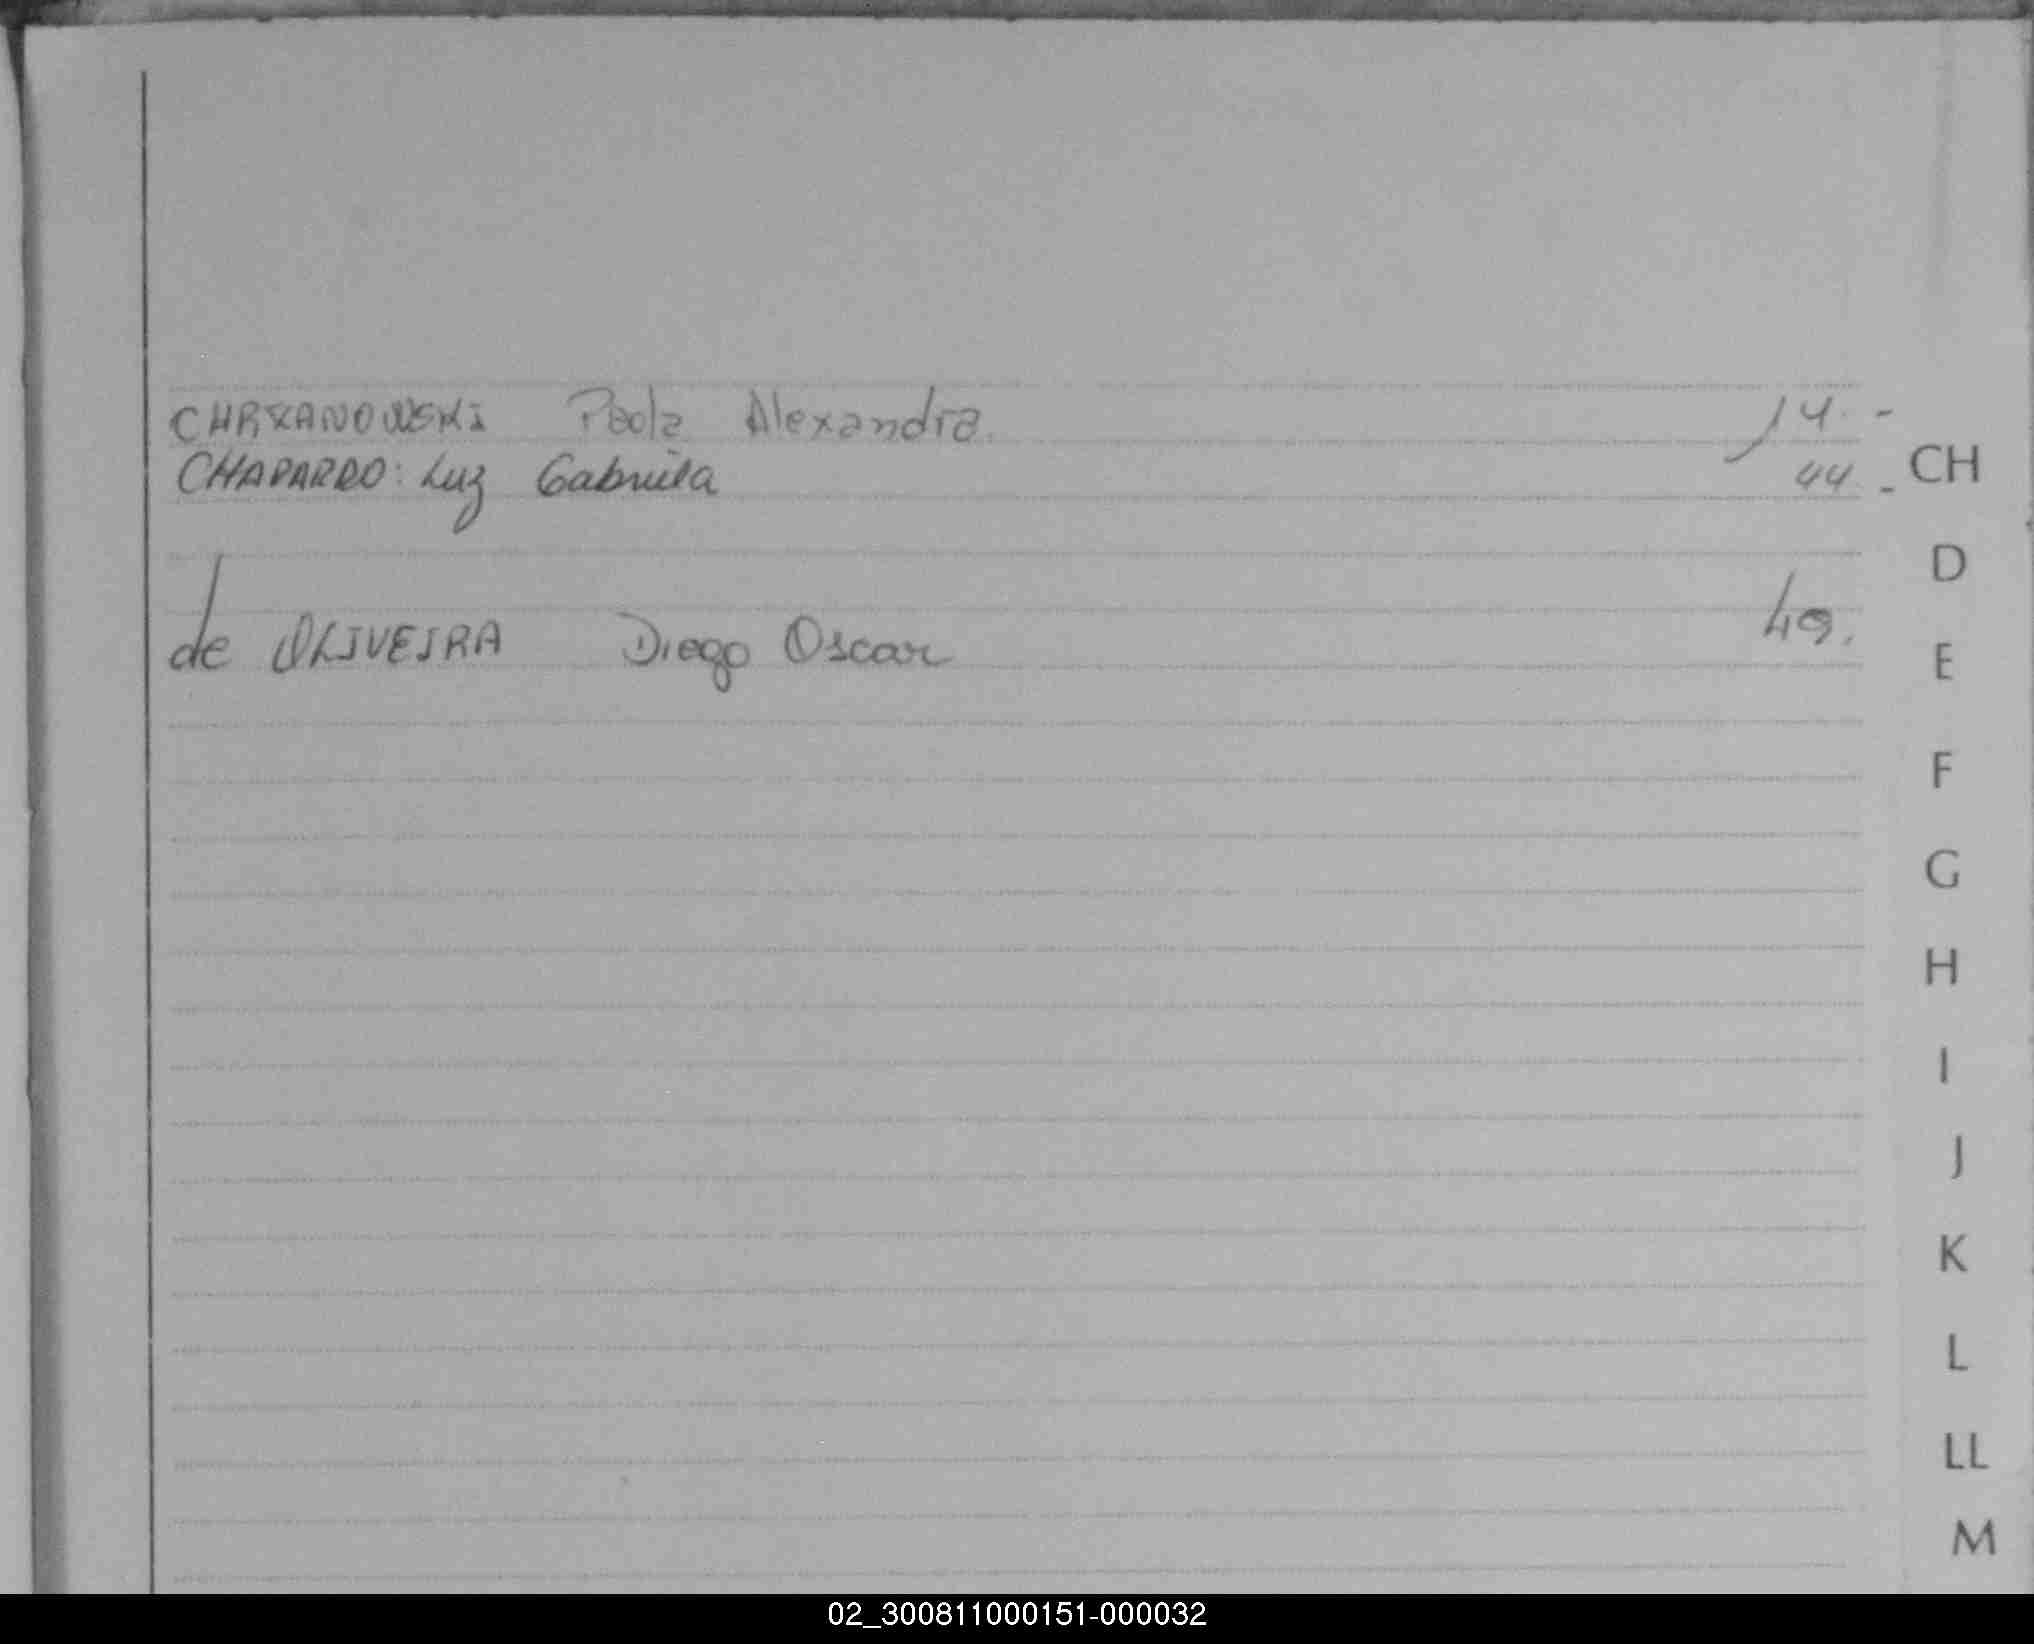 CHRZANOWSKI Paola Alexandra. 14. -
CHAPARRO: Luz Gabriela 44. -
CH
D
de OLIVEIRA Diego Oscar 49.
E
F
G
H
I
J
K
L
LL
M
02_300811000151-000032